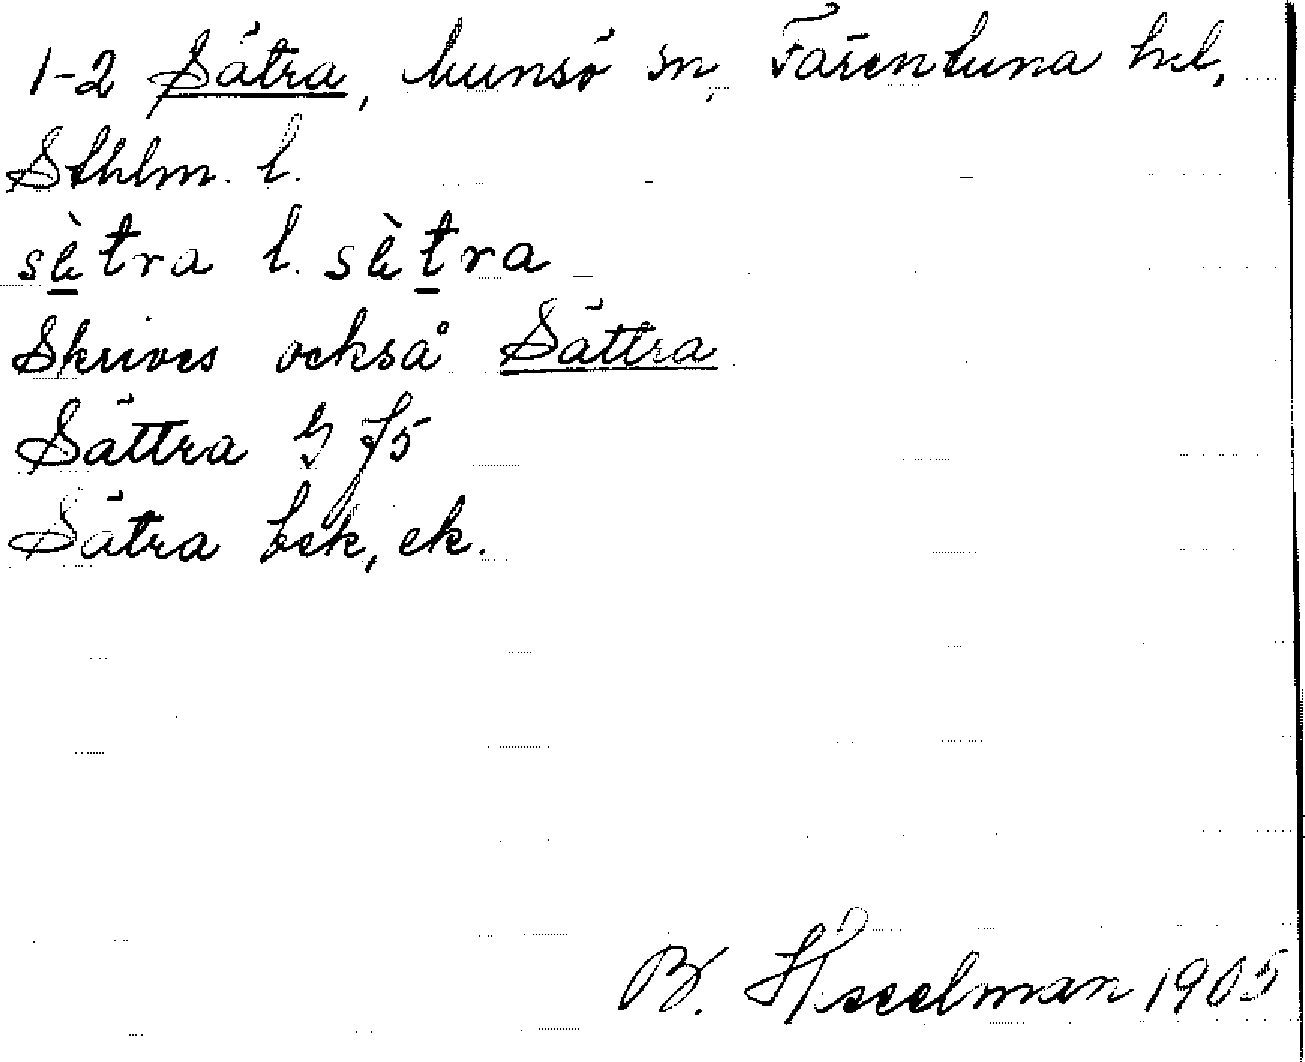 1-2 Sätra, Munsö sn, Färentuna hd,
Sthlm. l.
sὲtra l. sὲtra
Skrives också Sättra
Sättra G J5
Sätra bek, ek.
B. Hesselman 1905